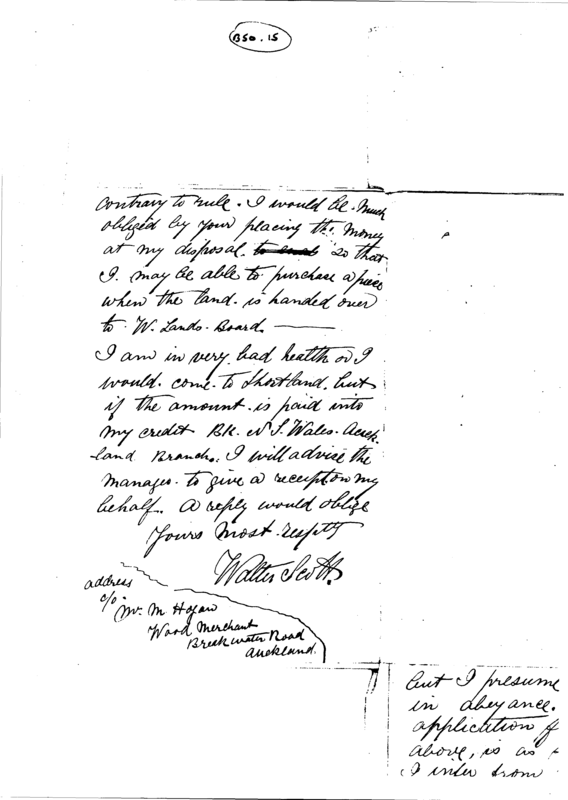 B50.15
contrary to rule. I would be. much
obliged by your placing the. money
at my disposal. so that
I. may be able to purchase a piece
when the land. is handed over
to W. Lands. Board.
I am in very bad health or I
would. come. to Shortland. but
if the amount. is paid into
my credit BK. N S. Wales. Auck-
-land Branch. I will advise the
manager. to give a receipt on my
behalf. A reply would oblige
Yours most. respfty
Walter Scott.
address
c/o.
Mr. M Hogan
Wood Merchant
Breakwater Road
Auckland.
but I presume
in abeyance.
application
above, is as
I infer from